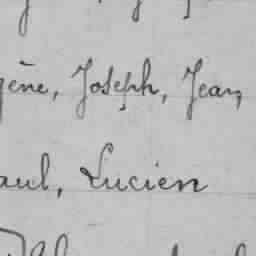 gène, Joseph, Jean,
aul, Lucien